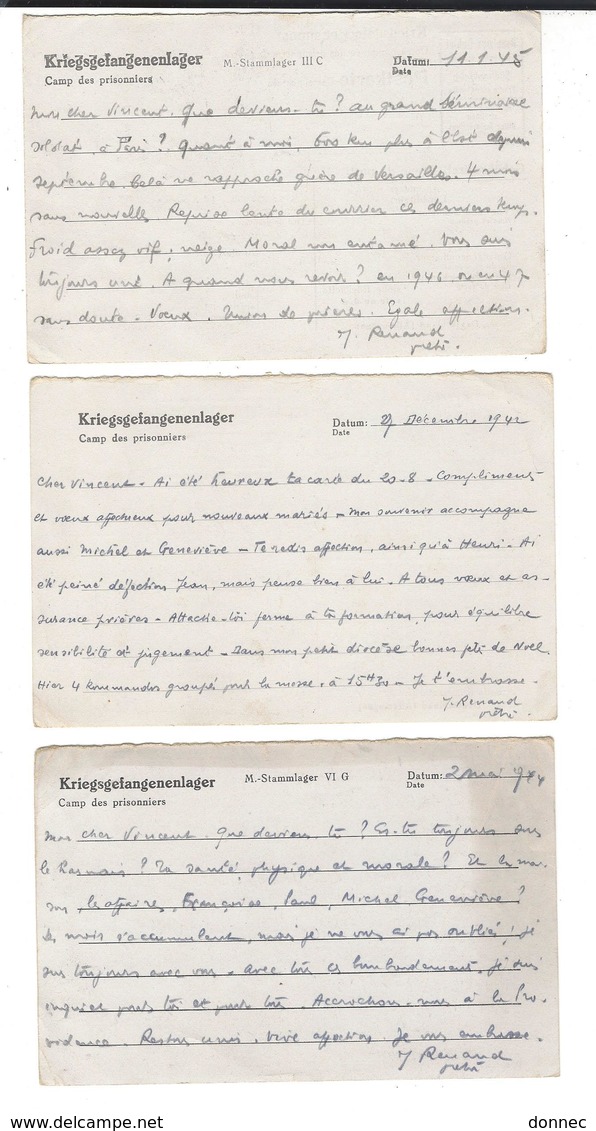 Kriegsgefangenenlager M.-Stammlager III C Datum: 11.1.45
Camp des prisonniers Date
Mon cher Vincent. Que deviens-tu ? au grand Séminaire
soldat à Paris ? Quant à moi, 600 km plus à l'Est depuis
septembre. Cela ne rapproche guère de Versailles. 4 mois
sans nouvelles. Reprise lente du courrier ces derniers temps.
Froid assez vif, neige. Moral non entamé. Vous suis
toujours uni. A quand nous revoir ? en 1946 ou en 47
sans doute. Voeux. Union de prières. Egale affection.
J. Renaud
prêtre.
Kriegsgefangenenlager Datum: 27 Décembre 1942
Camp des prisonniers Date
Cher Vincent - Ai été heureux ta carte du 20-8 - Compliments
et voeux affectueux pour nouveaux mariés - Mon souvenir accompagne
aussi Michel et Geneviève - Te redis affection, ainsi qu'à Henri - Ai
été peiné défection Jean, mais pense bien à lui. A tous voeux et as-
surance prières - Attache-toi ferme à ta formation, pour équilibre
sensibilité et jugement - Dans mon petit diocèse bonnes fêtes de Noël.
Hier 4 kommandos groupés pour la messe, à 15H30 - Je t'embrasse -
J. Renaud
prêtre.
Kriegsgefangenenlager M.-Stammlager VI G Datum: 2 mai 1944
Camp des prisonniers Date
Mon cher Vincent. Que deviens-tu ? Es-tu toujours sur
le ? Ta santé physique et morale ? Et la mai-
son, les affaires, Françoise, Paul, Michel Geneviève ?
Les mois s'accumulent, mais je ne vous ai pas oubliés ; je
suis toujours avec vous. Avec tous ces bombardements, je suis
inquiet pour toi et pour tous. Accrochons-nous à la Pro-
vidence. Restons unis. Vive affection. Je vous embrasse.
J Renaud
prêtre
donnec